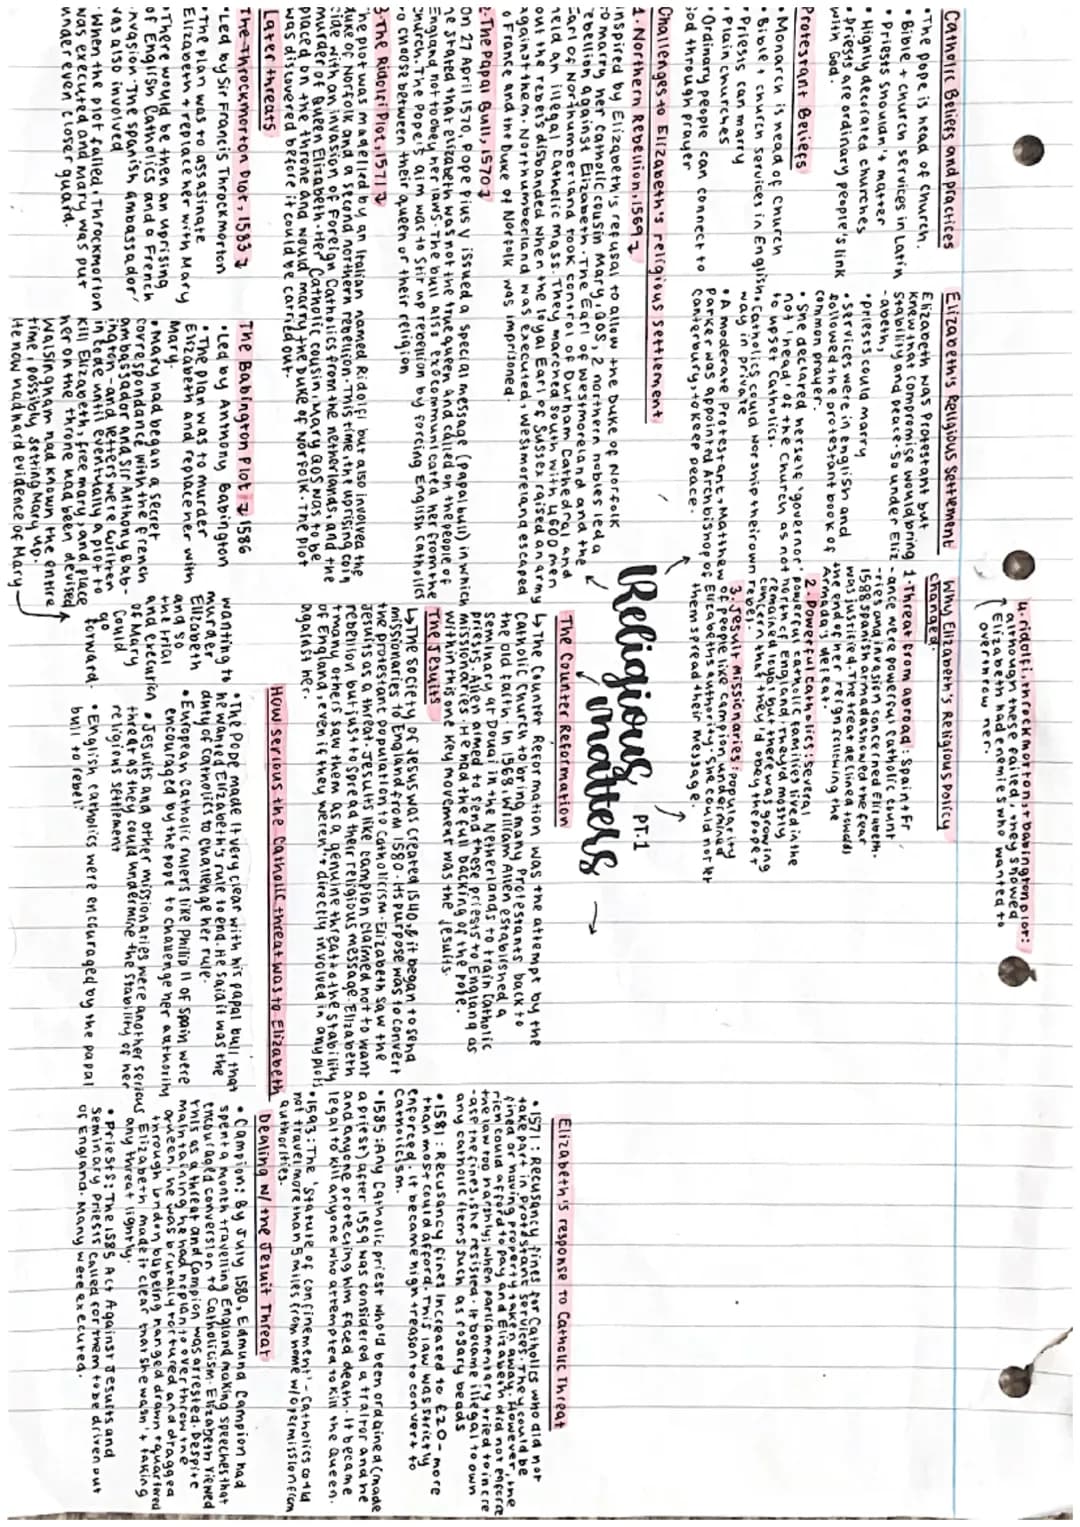 Catholic Beliefs and practices
• The pope is head of church.
• Bible + church services in Latin
• Priests shouldn't matter
• Highly decorated churches
• Priests are ordinary people's link
with God.
Protestant Beliefs
• Monarch is head of church
• Bible + church services in English
• Priests can marry
• Plain churches
• Ordinary people can connect to
God through prayer
Elizabeth's Religious Settlement
Elizabeth was Protestant but
knew that compromise would bring
stability and peace. So under Eliz
-abeth;
• Priests could marry
• Services were in english and
followed the protestant book of
common prayer.
• She declared herself 'governor'
not 'head' of the church as not
to upset Catholics.
• Catholics could worship their own
way in private
• A moderate Protestant, Matthew
Parker was appointed Archbishop of
Canterbury, to keep peace.
Why Elizabeth's Religious Policy
changed.
1. Threat from abroad: Spain + Fr
-ance were powerful Cathlic count
-ries and invasion concerned Elizabeth.
1588 Spanish armada showed the fear
was justified. The treat declined towards
the end of her reign following the
Armada's defeat.
2. Powerful catholics: several
powerful catholic families lived in the
north of England and they'd mostly
remained loyal but there was growing
concern that they'd obey the pope +
rebel.
3. Jesuit missionaries: popularity
of people like campion undermined
Elizabeths authority. She could not let
them spread their message.
4. ridolfi, throckmorton, + babington plot:
although these failed, they showed
Elizabeth had enemies who wanted to
overthrow her.
Religious matters PT.1
Challenges to Elizabeth's religious settlement
1. Northern Rebellion, 1569
Inspired by Elizabeth's refusal to allow the Duke of Norfolk
to marry her catholic cousin Mary, QOS, 2 northern nobles led a
rebellion against Elizabeth. The Earl of Westmoreland and the
Earl of Northumberland took control of Durham Cathedral and
held an illegal Catholic mass. They marched south with 4600 men
but the rebels disbanded when the loyal Earl of Sussex raised an army
against them. Northumberland was executed, Westmoreland escaped
to France and the Duke of Norfolk was imprisoned.
2. The Papal Bull, 1570
On 27 April 1570, Pope Pius V issued a special message (papal bull) in which
he stated that elizabeth was not the true queen and called on the people of
England not to obey her laws. The bull also excommunicated her from the
church. The Pope's aim was to stir up rebellion by forcing English catholics
to choose between their queen or their religion
3. The Ridolfi Plot, 1571
The plot was mader led by an Italian named Ridolfi but also involved the
duke of Norfolk and a second northern rebellion. This time, the uprising coin
with an invasion of foreign Catholics from the netherlands, and the
murder of Queen Elizabeth. Her Catholic cousin, Mary QOS was to be
placed on the throne and would marry the Duke of Norfolk. The plot
was discovered before it could be carried out.
Later threats
The Throckmorton Plot, 1583
• Led by Sir Francis Throckmorton
• The plan was to assasinate
Elizabeth + replace her with Mary
• There would be then an uprising
of English Catholics and a French
invasion. The spanish ambassador
was also involved
• When the plot failed, Throckmorton
was executed and Mary was put
under even closer guard.
The Babington Plot 1586
• Led by Anthony Babington
• The plan was to murder
Elizabeth and replace her with
Mary.
• Mary had began a secret
correspondance with the french
ambassador and Sir Anthony Bab-
ington - and letters were written
in code until eventually a plot to
kill Elizabeth, free mary, and place
her on the throne had been devised
Walsingham had known the entire
time, possibly setting Mary up.
He now had hard evidence of Mary
wanting to
murder
Elizabeth
and so
the trial
and execution
of Mary
could
go
forward.
The Counter Reformation
↳ The Counter Reformation was the attempt by the
Catholic Church to bring many Protestants back to
the old faith: In 1568, William Allen established a
seminary at Douai in the Netherlands to train Catholic
priests. Allen aimed to send these priests to England as
missionaries. He had the full backing of the Pope.
Within this one key movement was the Jesuits.
The Jesuits
↳ The society of Jesus was created 1540, & it began to send
missionaries to England from 1580. Its purpose was to convert
the protestant population to catholicism. Elizabeth saw the
Jesuits as a threat. Jesuits like campion claimed not to want
rebellion but just to spread their religious message. Elizabeth
+ many others saw them as a genuine threat to the stability
of England, even if they weren't directly involved in any plots
against her.
How serious the Catholic threat was to Elizabeth
• The Pope made it very clear with his papal bull that
he wanted Elizabeth's rule to end. He said it was the
duty of catholics to challenge her rule.
• European Catholic rulers like Philip II of Spain were
encouraged by the pope to challenge her authority
• Jesuits and other missionaries were another serious
threat as they could undermine the stability of her
religious settlement
• English catholics were encouraged by the papal
bull to rebel.
Elizabeth's response to Catholic Threat
• 1571: Recusancy fines for Catholics who did not
take part in Protestant services. They could be
fined or having property taken away. However, the
rich could afford to pay and Elizabeth did not enforce
the law too harshly; when parliamentary tried to incre
-ase the fines, she resisted. It became illegal to own
any catholic items such as rosary beads
• 1581: Recusancy fines increased to £20 - more
than most could afford. This law was strictly
enforced. It became high treason to convert to
Catholicism.
• 1585: Any Catholic priest who'd been ordained (made
a priest) after 1559 was considered a traitor and he
and anyone protecting him faced death. It became
legal to kill anyone who attempted to kill the Queen.
• 1593: The 'Statute of confinement' - Catholics could
not travel more than 5 miles from home w/o permission from
authorities.
Dealing w/ the Jesuit Threat
• Campion: By July 1580, Edmund Campion had
spent a month travelling England making speeches that
encouraged conversion to Catholicism. Elizabeth viewed
this as a threat and Campion was arrested. Despite
maintaining he had no plan to over throw the
queen, he was brutally tortured and dragged
through London by being hanged drawn + quartered
Elizabeth made it clear that she wasn't taking
any threat lightly.
• Priests: The 1585 Act Against Jesuits and
Seminary Priests called for them to be driven out
of England. Many were executed.